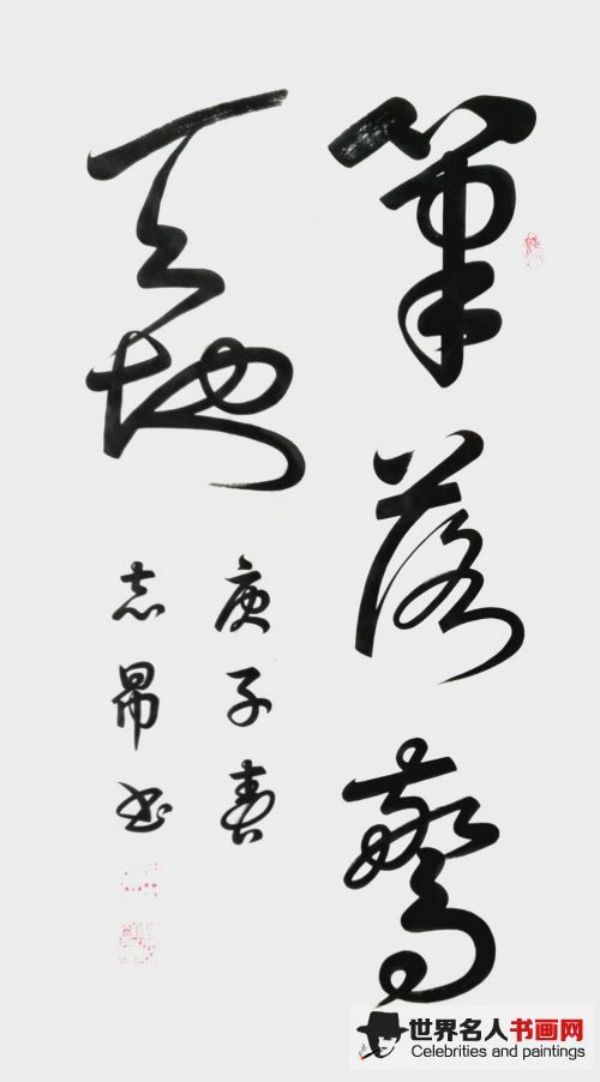 筆落驚
天地
庚子春
志昴书
世界名人书画网
Celebrities and paintings